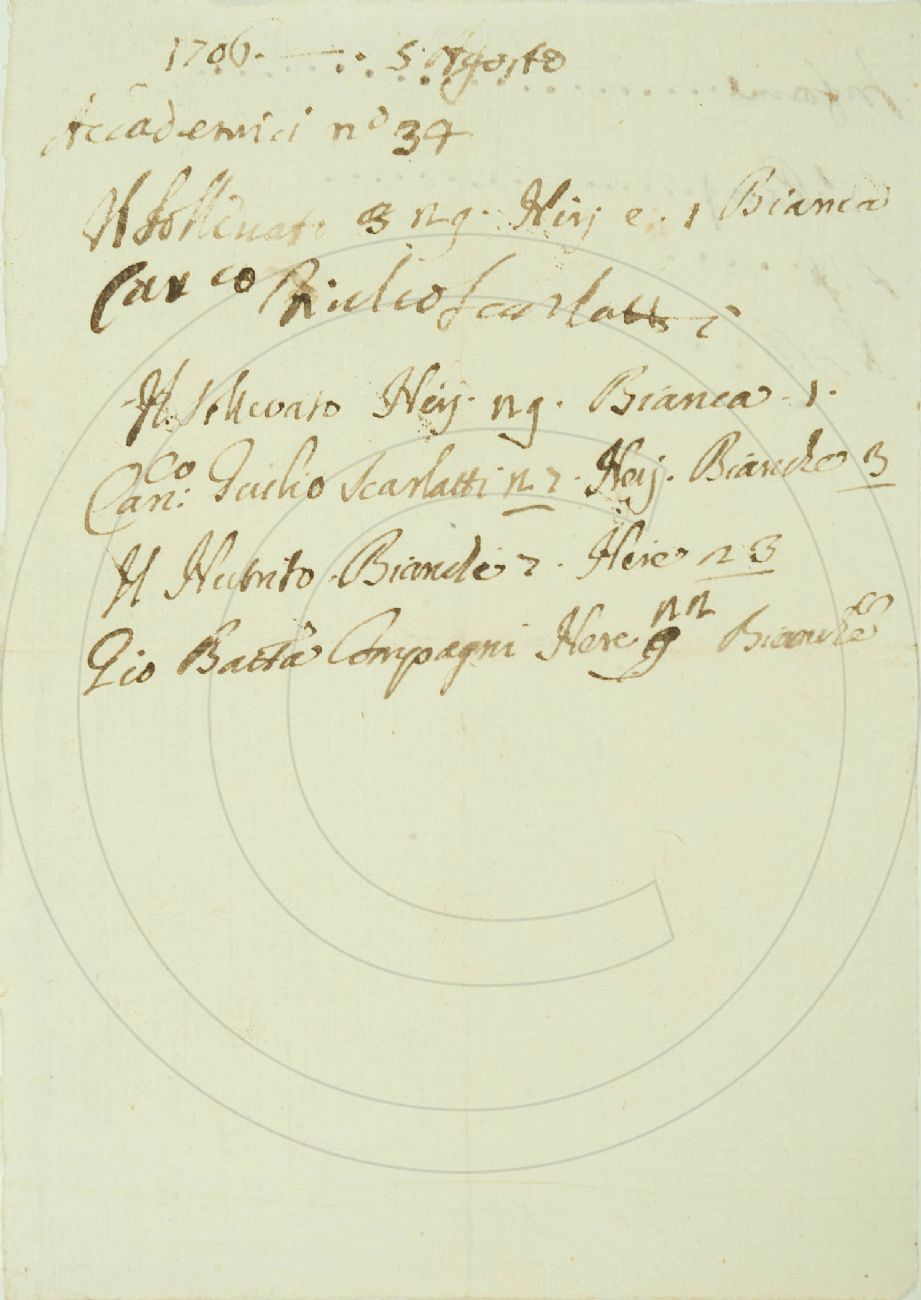 1706. — .. 5. Agosto
Accademici n° 34
Il Sollevato 3 ng. Nerj e. 1 Bianca
Can co Giulio Scarlatti
Il Sollevato Nerj. ng. Bianca. 1.
Can:co Giulio Scarlatti Nerj. Bianche 3
Il Nutrito Bianche 7. Nere 23
Gio Batta Compagni Nere Bianche